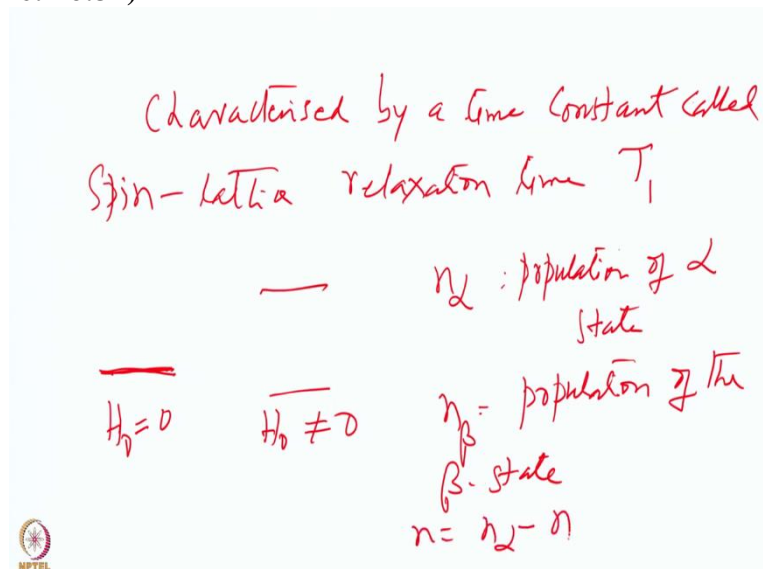 Characterised by a time constant called
Spin-Lattice relaxation time T₁
n_α : population of α
state
H₀=0 H₀ ≠ 0 n_β = population of the
β-state
n = n_α - n
NPTEL